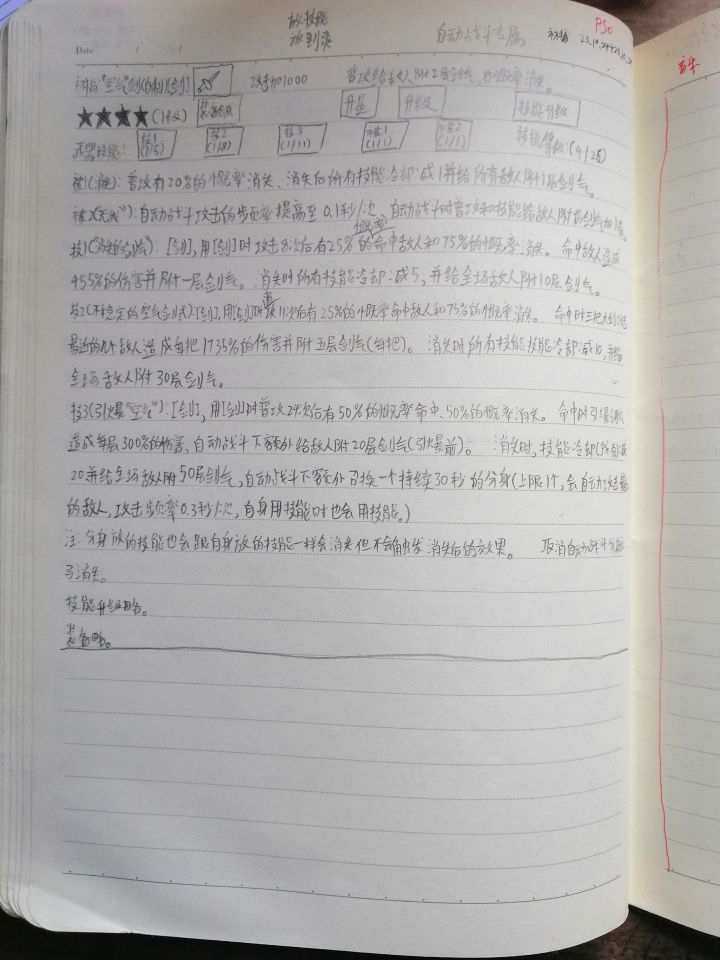 放技能
放到染
自动战斗专属
P50
Date / /
"空气"剑(伪制)[剑] 攻击加1000 普攻给敌人附2层剑气,有概率消失。
★★★★(1级) 装备合成 升星 升级 技能升级
武器技能: 技1(1/5) 技2(1/8) 技3(1/11) 被1(1/1) 被2(1/1) 技能等级(4/25)
被1(): 普攻有20%的概率消失、消失后所有技能冷却减1并给所有敌人附1层剑气。
被2("无线"): 自动战斗攻击的步频率提高至0.1秒/次、自动战斗时普攻和技能给敌人附的剑气加1层。
技1("剑气"): [剑],用[剑]时攻击8次后有25%的概率命中敌人和75%的概率消失。 命中敌人造成
455%的伤害并附一层剑气。 消失时所有技能冷却减5,并给全场敌人附10层剑气。
技2(不稳定的空气剑式): [剑],用[剑]时普攻11次后有25%的概率命中敌人和75%的概率消失。 命中时三把大剑
最近的敌人造成每把1735%的伤害并附五层剑气(每把)。 消失时所有技能技能冷却减10,并给
全场敌人附30层剑气。
技3(引爆"空气"): [剑],用[剑]时普攻24次后有50%的概率命中、50%的概率消失。 命中时引爆
造成每层300%的伤害,自动战斗下额外给敌人附20层剑气(引爆前)。 消失时,技能冷却(所有)减
20并给全场敌人附50层剑气,自动战斗下额外召换一个持续30秒的分身(上限1个,会自动攻击最近
的敌人,攻击步频率0.3秒/次,自身用技能时也会用技能。)
注:分身放的技能也会跟自身放的技能一样会消失但不会触发消失后的效果。 取消自动战斗分身
会消失。
技能升级略。
装备略。